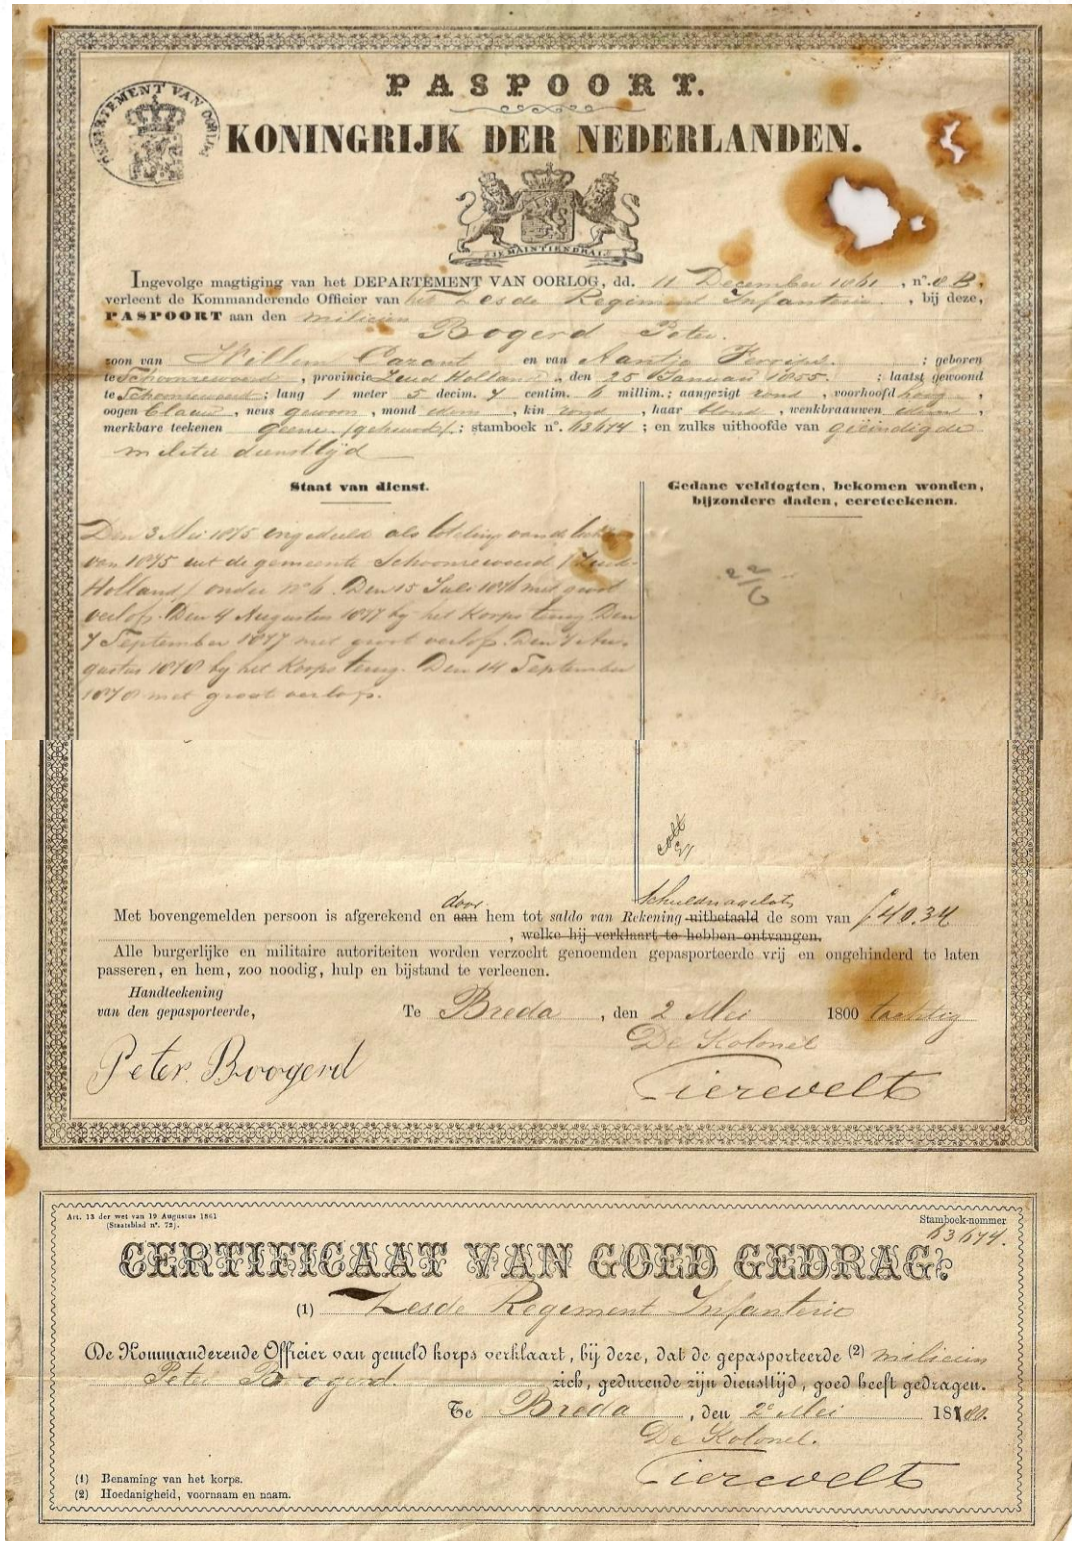 DEPARTEMENT VAN OORLOG
PASPOORT.
KONINGRIJK DER NEDERLANDEN.
JE MAINTIENDRAI
Ingevolge magtiging van het DEPARTEMENT VAN OORLOG, dd. 11 December 1861, n°. 8 B,
verleent de Kommanderende Officier van het Zesde Regiment Infanterie, bij deze,
PASPOORT aan den milicien
Bogerd Peter.
zoon van Willem Carant en van Aantje ; geboren
te Schoonrewoerd, provincie Zuid Holland, den 25 Januari 1855. ; laatst gewoond
te Schoonrewoerd ; lang 1 meter 5 decim. 7 centim. 6 millim.; aangezigt rond, voorhoofd hoog,
oogen blauw, neus gewoon, mond idem, kin rond, haar blond, wenkbraauwen idem,
merkbare teekenen geene. (gehuwd) ; stamboek n°. 63674 ; en zulks uithoofde van geëindigde
militie diensttijd
Staat van dienst.
Gedane veldtogten, bekomen wonden,
bijzondere daden, eereteekenen.
Den 3 Mei 1875 ingedeeld als loteling van de ligting
van 1875 uit de gemeente Schoonrewoerd (Zuid-
Holland) onder n° 6. Den 15 Juli 1876 met groot
verlof. Den 4 Augustus 1877 bij het Korps terug. Den
7 September 1877 met groot verlof. Den Au-
gustus 1878 bij het Korps terug. Den 14 September
1878 met groot verlof.
Met bovengemelden persoon is afgerekend en aan door hem tot saldo van Rekening uitbetaald schuld nagelaten de som van f 40.34
, welke hij verklaart te hebben ontvangen.
Alle burgerlijke en militaire autoriteiten worden verzocht genoemden gepasporteerde vrij en ongehinderd te laten
passeren, en hem, zoo noodig, hulp en bijstand te verleenen.
Handteekening
van den gepasporteerde,
Te Breda, den 2 Mei 1800 tachtig
De Kolonel
Peter Boogerd
Tierevelt
Art. 13 der wet van 19 Augustus 1861
(Staatsblad n°. 72).
Stamboek-nommer
63674.
CERTIFICAAT VAN GOED GEDRAG.
(1) Zesde Regiment Infanterie
De Kommanderende Officier van gemeld korps verklaart, bij deze, dat de gepasporteerde (2) milicien
Peter Boogerd. zich, gedurende zijn diensttijd, goed heeft gedragen.
Te Breda, den 2e Mei 1880.
De Kolonel.
Tierevelt
(1) Benaming van het korps.
(2) Hoedanigheid, voornaam en naam.